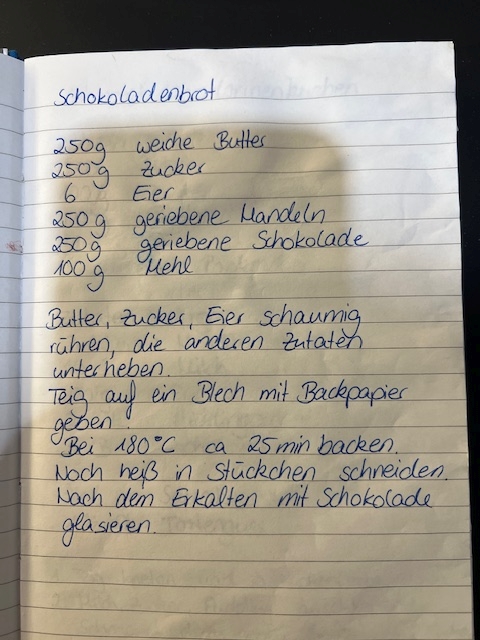 Schokoladenbrot
250g weiche Butter
250g Zucker
6 Eier
250g geriebene Mandeln
250g geriebene Schokolade
100g Mehl
Butter, Zucker, Eier schaumig
rühren, die anderen Zutaten
unterheben.
Teig auf ein Blech mit Backpapier
geben.
Bei 180°C ca 25min backen.
Noch heiß in Stückchen schneiden.
Nach dem Erkalten mit Schokolade
glasieren.